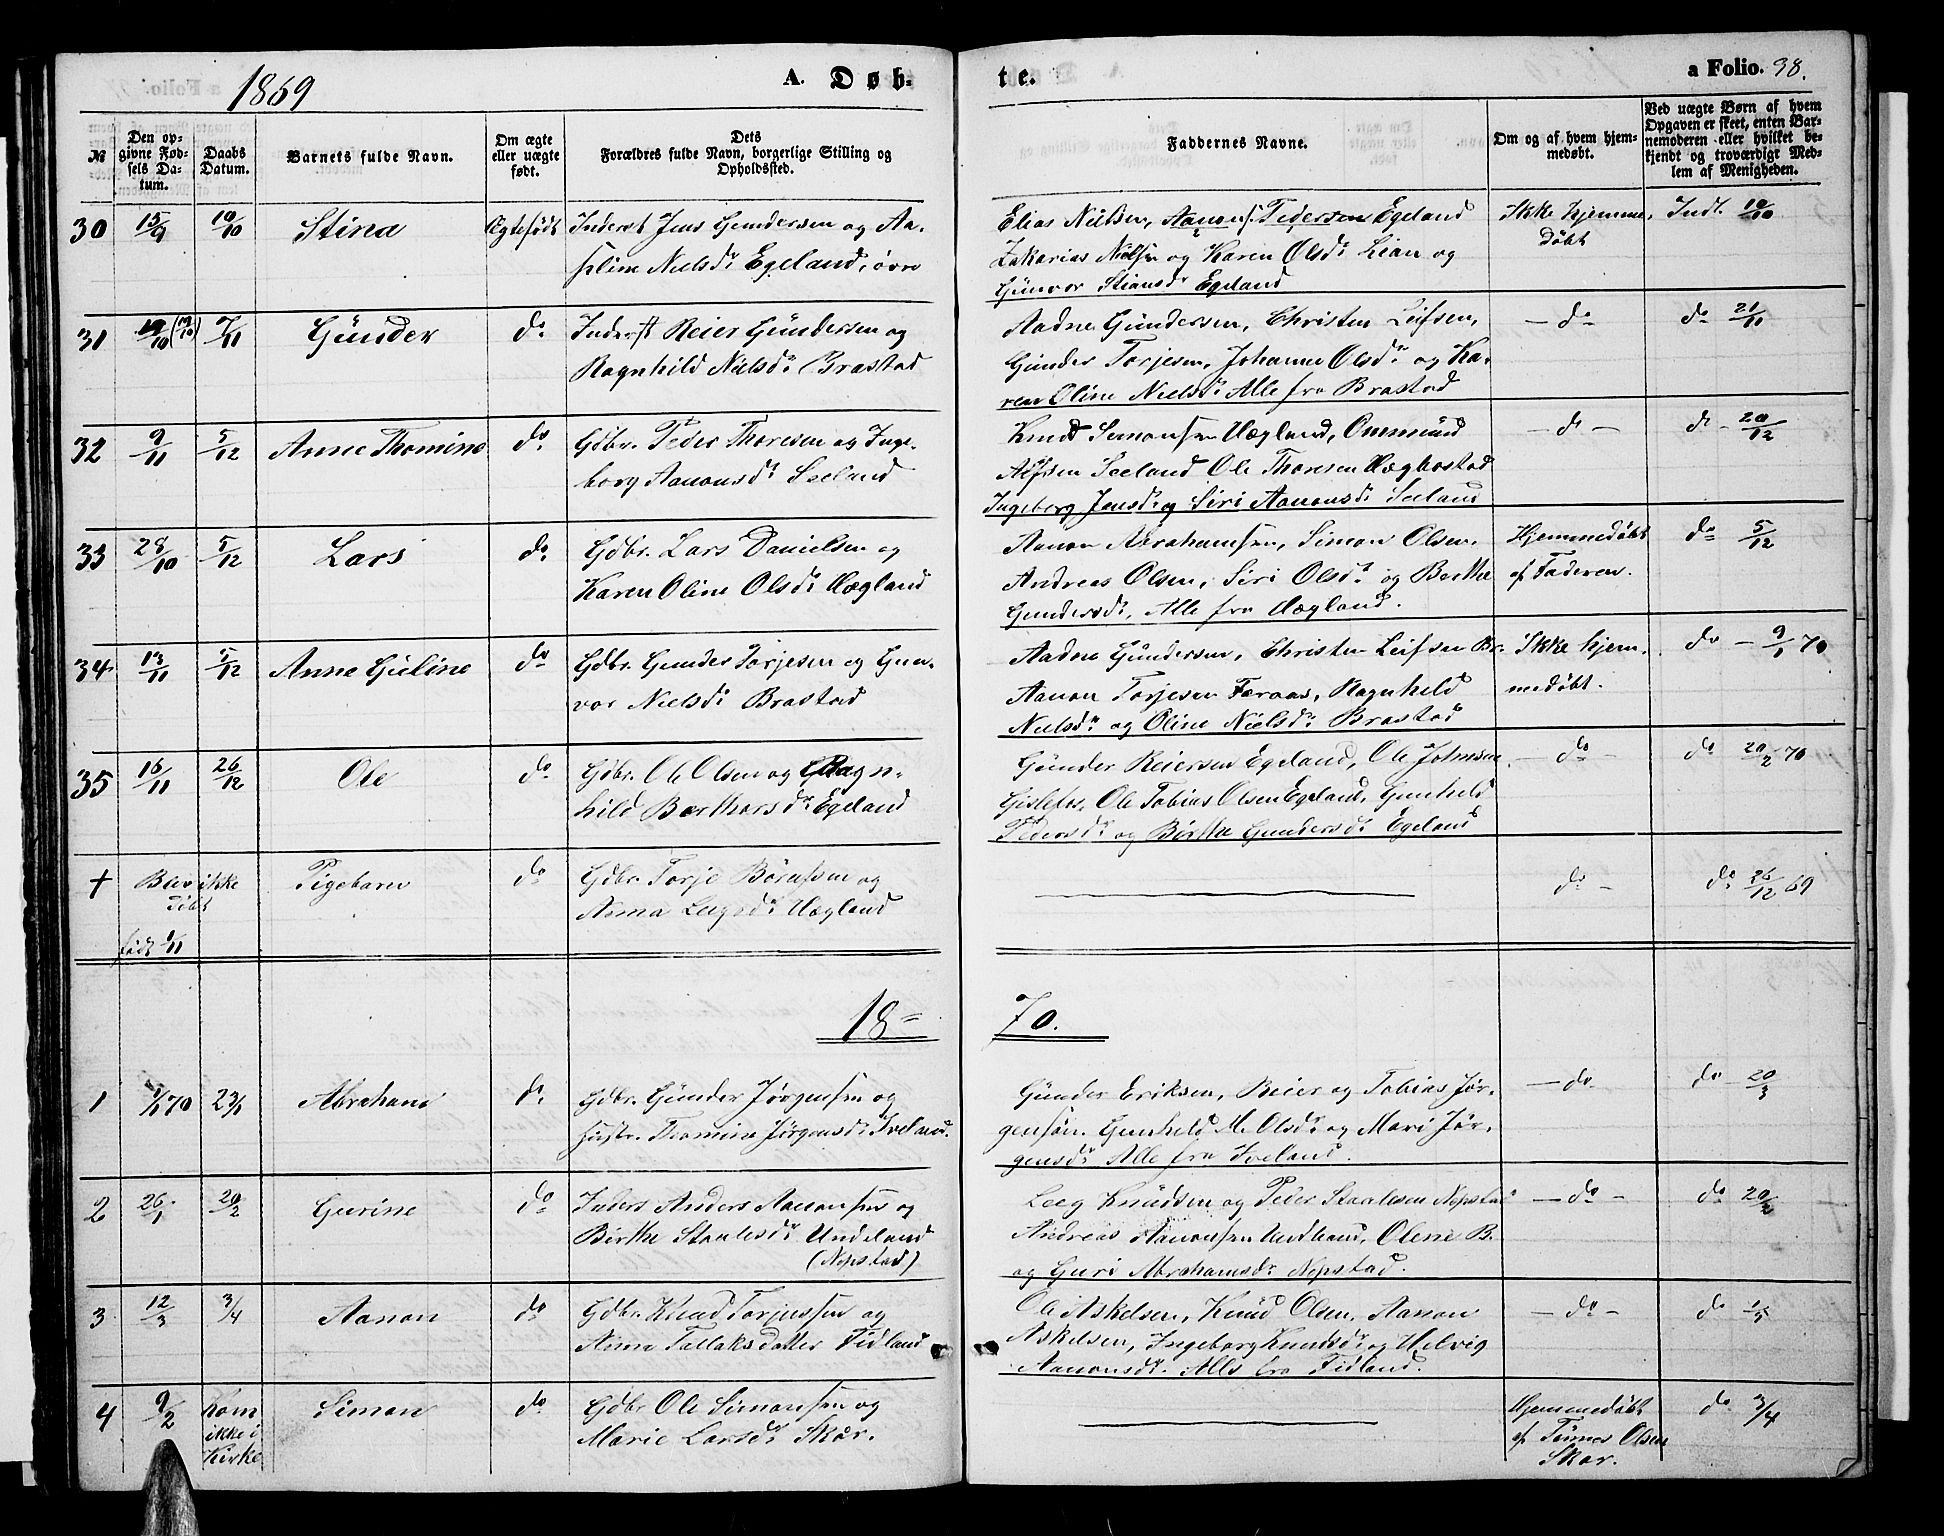 1869
A. Døb-
te.
a Folio. 38.
№
Den op-
givne Fød-
sels Da-
tum.
Daabs
Datum.
Barnets fulde Navn.
Om ægte
eller uægte
født.
Dets
Forældres fulde Navn, borgerlige Stilling og
Opholdssted.
Faddernes Navne.
Om og af hvem hjem-
medøbt.
Ved uægte Børn af hvem
Opgaven er skeet, enten Bar-
nemoderen eller hvilket be-
kjendt og troværdigt Med-
lem af Menigheden.
30 15/9 10/10 Stina Ægtefødt Inderst Jens Gundersen og Aa-
sline Nielsdr Egeland, øvre
Elias Nielsen, Aanon Pedersen Egeland
Zakarias Nielsen og Karen Olsdr Lian og
Gunvor Stiansdr Egeland
Ikke hjemme-
døbt
Indl. 10/10
31 19/10 (19/10) 7/11 Günder do Inderst Reier Gündersen og
Ragnhild Nielsdr Brastad
Aadne Gündersen, Christen Leifsen,
Günder Torjesen, Johanne Olsdr og Ka-
ren Oline Nielsdr Alle fra Brastad
- do do 21/11
32 9/11 5/12 Anne Thomine do Gdbr. Peder Thoresen og Inge-
borg Aanonsdr Seeland
Knud Simonsen Uægland, Ommund
Alfsen Seeland Ole Thoresen Hægbostad
Ingeborg Jensdr og Siri Aanonsdr Seeland
- do - do - 20/12
33 28/10 5/12 Lars do Gdbr. Lars Danielsen og
Karen Oline Olsdr Uægland
Aanon Abrahamsen, Simon Olsen,
Andreas Olsen, Siri Olsdr og Berthe
Gundersdr, Alle fra Uægland.
Hjemmedøbt
af Faderen.
do 5/12
34 13/11 5/12 Anne Guline do Gdbr. Gunder Torjesen og Gun-
vor Nielsdr Brastad
Aadne Gündersen, Christen Leifsen Br.
Aanon Torjesen Feraas, Ragnhild
Nielsdr og Oline Nielsdr Brastad
Ikke hjem-
medøbt.
do - 9/1 70
35 16/11 26/12 Ole do Gdbr. Ole Olsen og Ragn-
hild Berthorsdr Egeland
Günder Reiersen Egeland, Ole Johnsen
Gislefos, Ole Tobias Olsen Egeland, Gunhild
Pedersdr og Birthe Gundersdr Egeland
- do - do 20/2 70
† Blev ikke
døbt
født 1/11
Pigebarn do Gdbr. Torje Børufsen og
Anna Leegsdr Uægland
do - do 26/12 69
18=
70.
1 1/1 70 23/1 Abraham do Gdbr. Günder Jørgensen og
Hustr. Thomine Jørgensdr Iveland.
Günder Eriksen, Reier og Tobias Jør-
gensøn. Gunhild M. Olsdr og Mari Jør-
gensdr Alle fra Iveland.
- do do - 20/3
2 26/1 20/2 Gurine do Inders. Anders Aanonsen og
Birthe Staalesdr Undeland
(Nepstad)
Leeg Knudsen og Peder Staalesen Nepstad
Andreas Aanonsen Undland, Olene B.
og Guri Abrahamsdr Nepstad.
- do - do 20/2
3 12/3 3/4 Aanon do Gdbr. Knud Torjussen og
Anna Tallaksdatter Fidland
Ole Askelsen, Knud Olsen, Aanon
Askelsen, Ingeborg Knudsdr og Helvig
Aanonsdr. Alle fra Fidland.
- do - do 1/5
4 9/2 Kom
ikke i
Kirke
Simon do Gdbr Ole Simonsen og
Marie Larsdr Skar.
Hjemmedøbt
af Tønnes Olsen
Skar.
do 3/4